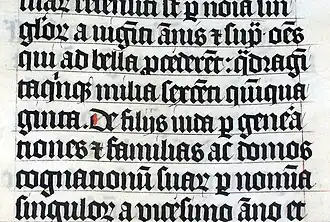 recensiti sūt p noīa sin
gulor̄ a uigīti ānis ⁊ sup̄ · oēs
qui ad bella p̄cederēt : q̄dragī
ta quīq̨ milia sexcēti quīqua
ginta . De filijs iuda p gene᷑a
tiones ⁊ familias ac domos
cognationū suar̄ p nomīa
singulor̄ a uicesimo āno et